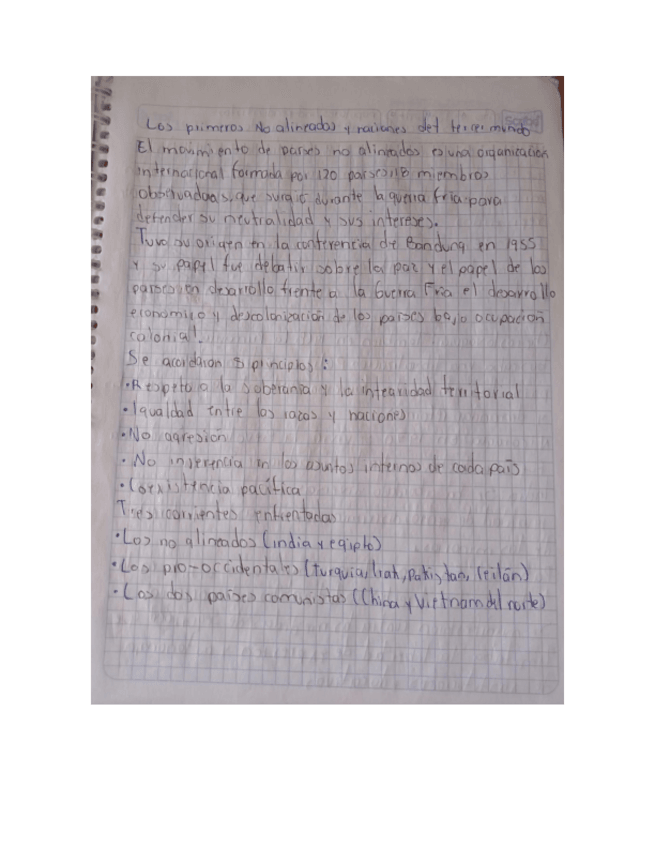 Los primeros No alineados y naciones del tercer mundo
El movimiento de paises no alineados es una organización
internacional formada por 120 paises 18 miembros
observadores, que surgió durante la guerra fría para
defender su neutralidad y sus intereses.
Tuvo su origen en la conferencia de Bandung en 1955
y su papel fue debatir sobre la paz y el papel de los
paises en desarrollo frente a la Guerra Fría el desarrollo
económico y descolonización de los países bajo ocupación
colonial.
Se acordaron 5 principios:
•Respeto a la soberania y la integridad territorial
•Igualdad entre las razas y naciones
•No agresión
•No injerencia en los asuntos internos de cada país
•Coexistencia pacífica
Tres corrientes enfrentadas
•Los no alineados (india y egipto)
•Los pro-occidentales (turquia, Irak, Pakistan, Ceilán)
•Los dos países comunistas (China y Vietnam del norte)